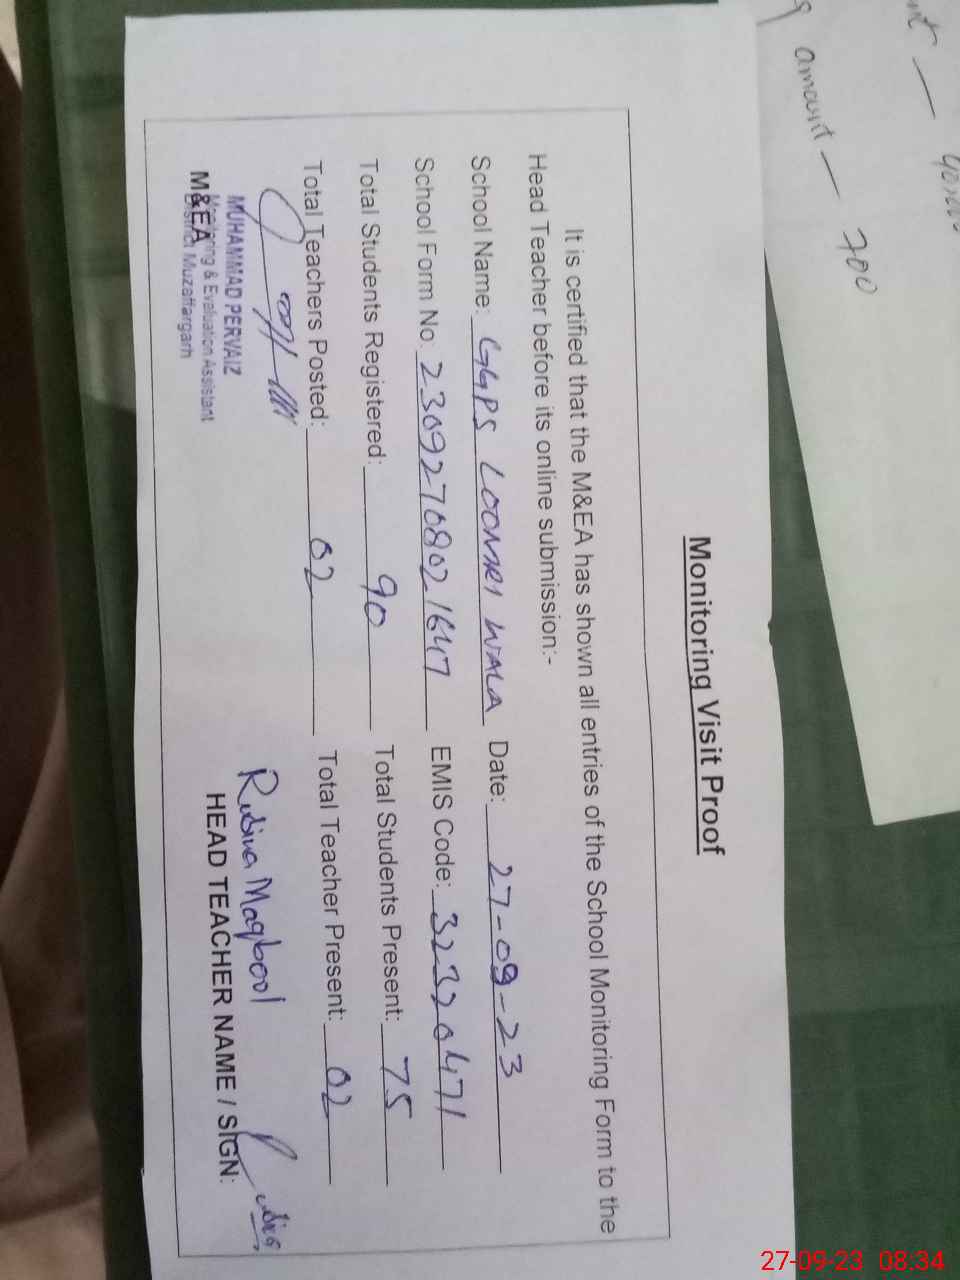 Monitoring Visit Proof
It is certified that the M&EA has shown all entries of the School Monitoring Form to the
Head Teacher before its online submission:-
School Name: GGPS LOONRI WALA Date: 27-09-23
School Form No. 23092708021647 EMIS Code: 32320471
Total Students Registered: 90 Total Students Present: 75
Total Teachers Posted: 02 Total Teacher Present: 02
MUHAMMAD PERVAIZ
Monitoring & Evaluation Assistant
District Muzaffargarh
M&EA
Rubina Maqbool
HEAD TEACHER NAME / SIGN:
amount - 700
27-09-23 08:34